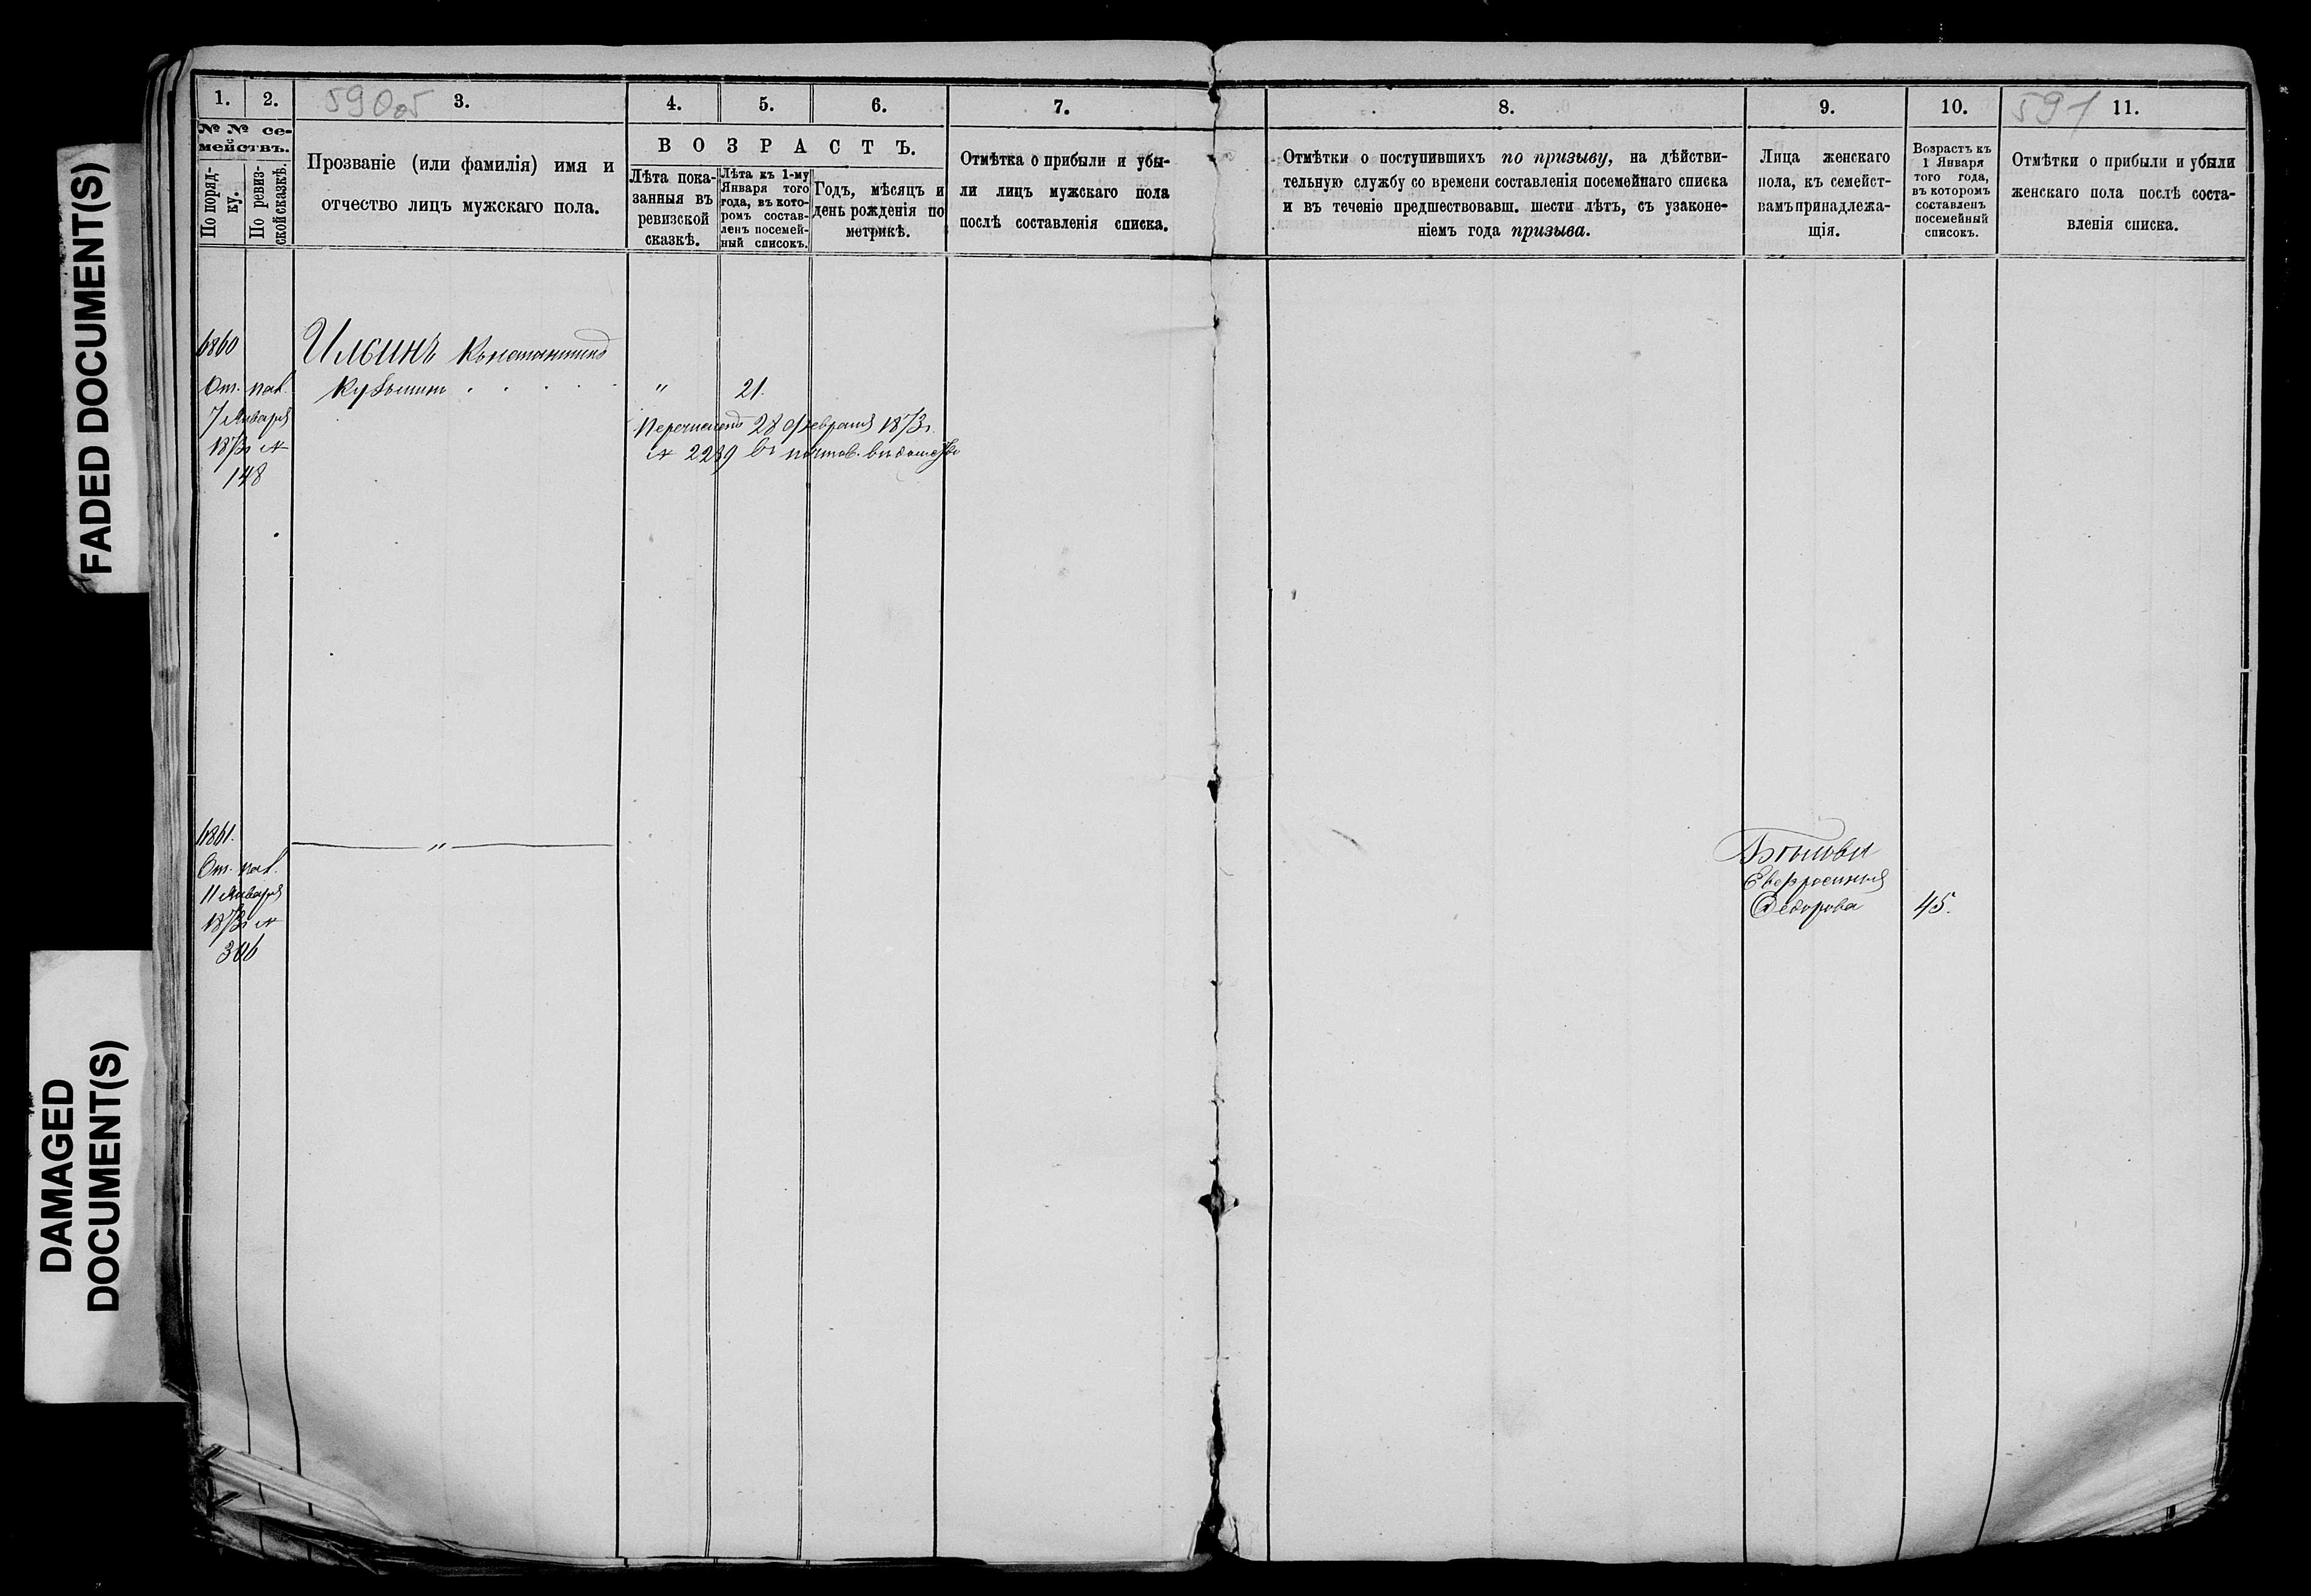 FADED DOCUMENT(S)
DAMAGED
DOCUMENT(S)
590об
1.
2.
3.
4.
5.
6.
7.
№ № се-
мействъ.
По поряд-
ку.
По ревиз-
ской сказкѣ.
Прозваніе (или фамилія) имя и
отчество лицъ мужскаго пола.
ВОЗРАСТЪ.
Лѣта пока-
занныя въ
ревизской
сказкѣ.
Лѣта къ 1-му
Января того
года, въ кото-
ромъ состав-
ленъ посемей-
ный списокъ.
Годъ, мѣсяцъ и
день рожденія по
метрикѣ.
Отмѣтка о прибыли и убы-
ли лицъ мужскаго пола
послѣ составленія списка.
8.
9.
10.
591
11.
Отмѣтки о поступившихъ по призыву, на дѣйстви-
тельную службу со времени составленія посемейнаго списка
и въ теченіе предшествовавш. шести лѣтъ, съ узаконе-
ніемъ года призыва.
Лица женскаго
пола, къ семейст-
вамъ принадлежа-
щія.
Возрастъ къ
1 Января
того года,
въ которомъ
составленъ
посемейный
списокъ.
Отмѣтки о прибыли и убыли
женскаго пола послѣ соста-
вленія списка.
6860
Ильинъ Константинъ
От. пал.
Кузьминъ
"
21.
7 Января
1873г №
148
Перечисленъ 28 февраля 1873г.
№ 2289 въ почтов. вѣдомство
6861.
"
От. пал.
11 Января
1873г №
306
Евфросинія
Федорова
45.